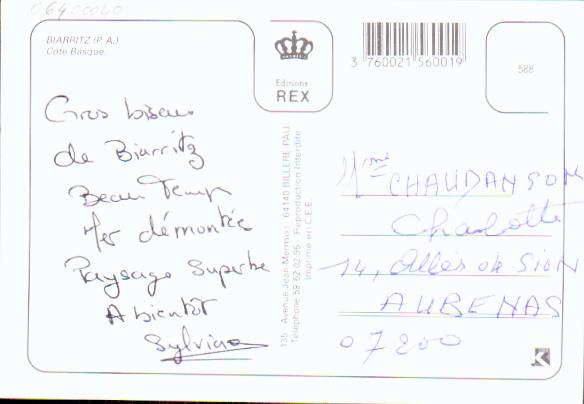 06400040
BIARRITZ (P. A.)
Côte Basque.
Editions
REX
3 760021 560019
588
Gros bisous
de Biarritz
Beau Temps
Mer démontée
Paysage Superbe
A bientôt
Sylviane
135, Avenue Jean Mermoz 64140 BILLERE-PAU
Téléphone 59.62.02.95 - Reproduction Interdite
Imprimé en C.E.E.
Mme CHAUDANSON
Charlotte
14, Allée de SION
AUBENAS
07200